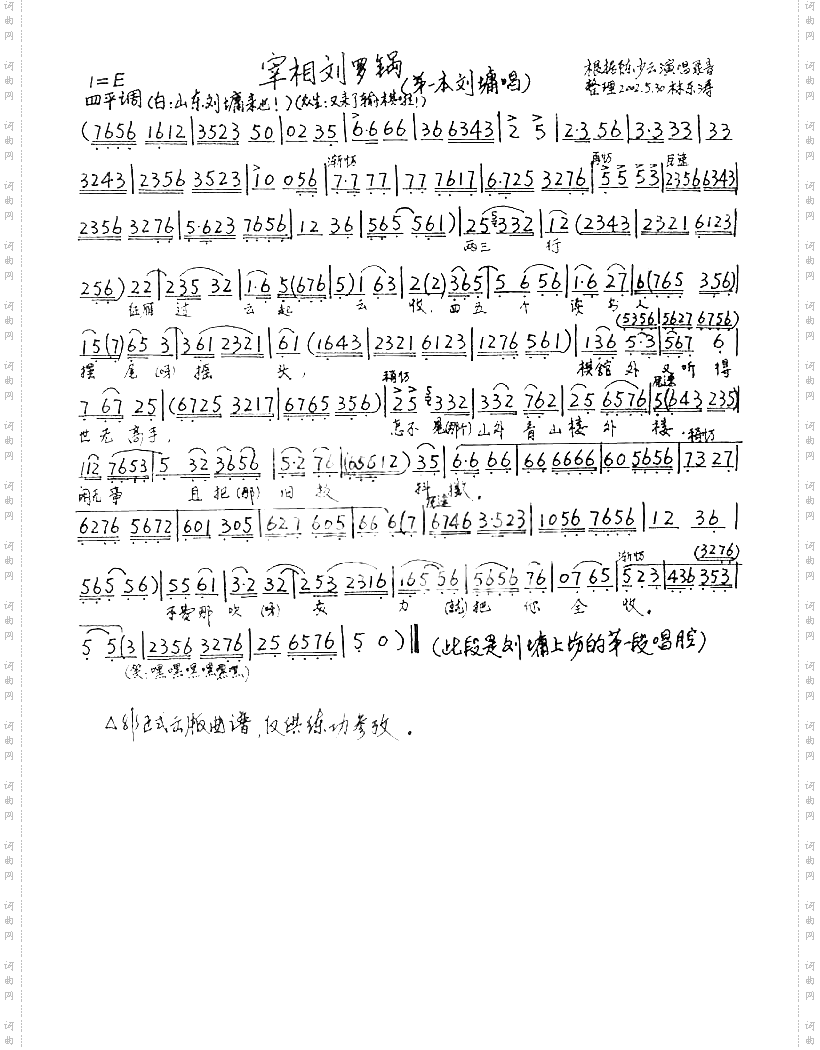 宰相刘罗锅(第一本刘墉唱)
1=E
根据陈少云演唱录音
整理2002.5.30林东涛
四平调(白:山东刘墉来也!)(众生:又来了输棋啦!)
(7656 1612|3523 50|02 35|6·6 66|36 6343|2 5|2·3 56|3·3 33|33
渐快 再快 尾速
3243|2356 3523|10 056|7·7 77|77 7617|6·725 3276|55 53|2356 6343|
2356 3276|5·623 7656|12 36|565 561)|25 332|12 (2343|2321 6123|
两三 行
256)22|235 32|1·6 5(676|5)1 63|2(2)365|5 656|1·6 27|6(765 356)|
征雁 过 云 起 云 收, 四五 个 读 书 人
(5356|5627 6756)
15(7)65 3|361 2321|61 (1643|2321 6123|1276 561)|136 5·3|567 6|
摆 尾(呀) 摇 头, 棋馆 外 又 听 得
稍快 尾速
7 67 25|(6725 3217|6765 356)|25 332|332 762|25 6576|5(643 235)|
世无 高手, 怎不 是(那个) 山外 青山 楼 外 楼。
稍快
112 7653|5 32 3656|5·2 76|(65612)35|6·6 66|66 6666|60 5656|73 27|
闲无事 且 把(那) 旧 技 抖 擞。
6276 5672|601 305|627 605|66 6(7|6746 3·523|1056 7656|12 36|
渐快 (3276)
565 56)|55 61|3·2 32|253 2316|165 56|5656 76|07 65|523|436 353|
不费 那 吹(呀) 灰 力 (就)把 他 全 收。
5 5(3|2356 3276|25 6576|5 0)‖(此段是刘墉上场的第一段唱腔)
(笑:嘿嘿嘿嘿嘿嘿)
△非正式出版曲谱,仅供练功参考。
词曲网